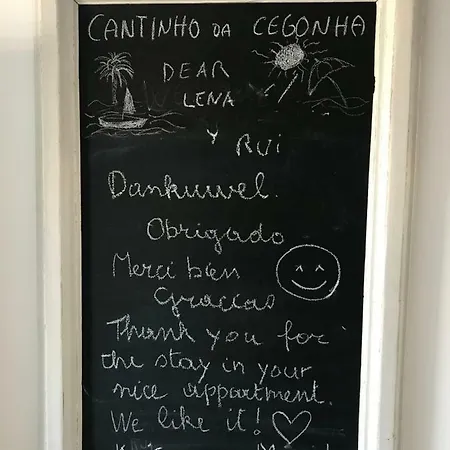 CANTINHO DA CEGONHA
DEAR
LENA
Y
RUI
Dankuwel.
Obrigado
Merci bien
Gracias
Thank you for
the stay in your
nice appartment.
We like it!